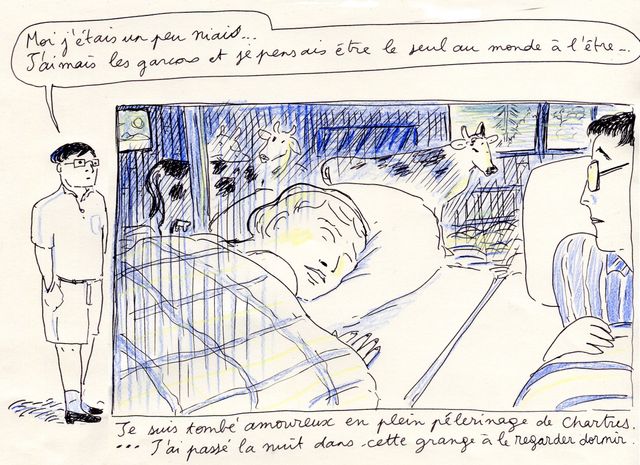 Moi j'étais un peu niais...
J'aimais les garcons et je pensais être le seul au monde à l'être...
Je suis tombé amoureux en plein pélerinage de Chartres.
... J'ai passé la nuit dans cette grange à le regarder dormir.